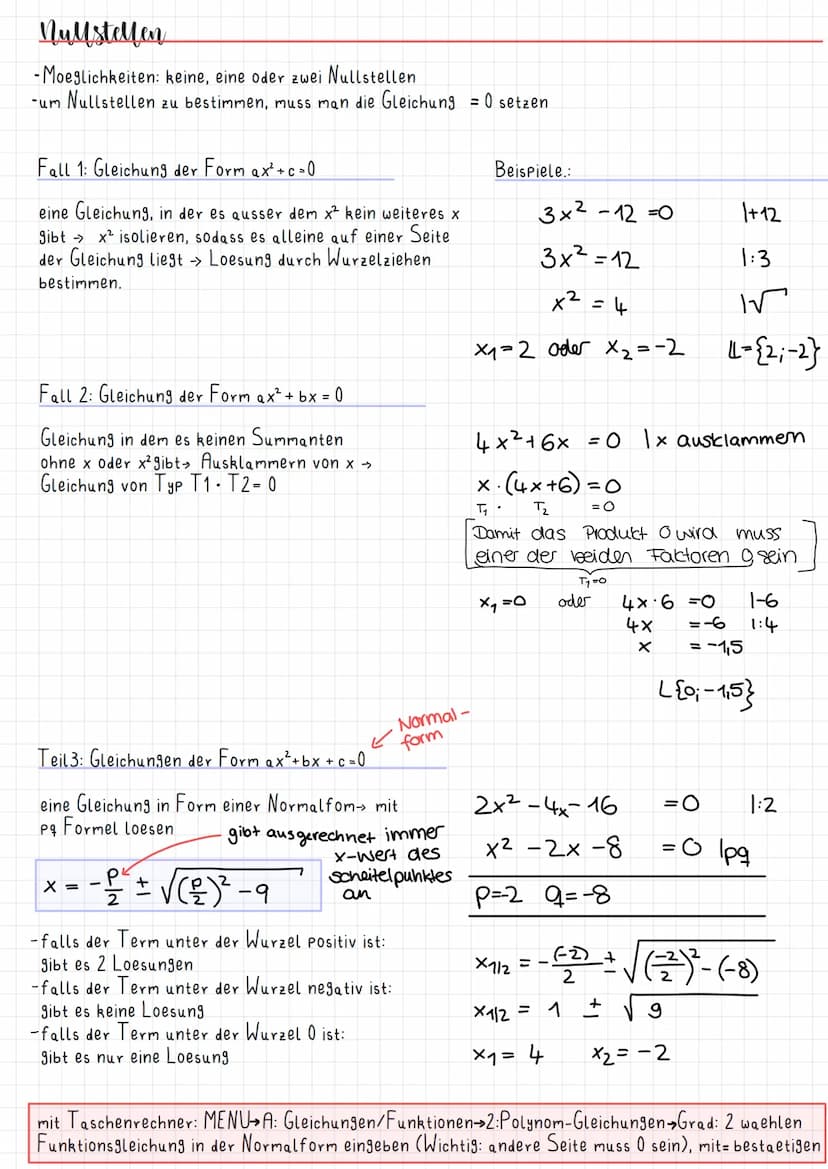 Nullstellen
-Moeglichkeiten: keine, eine oder zwei Nullstellen
-um Nullstellen zu bestimmen, muss man die Gleichung = 0 setzen
Fall 1: Gleichung der Form ax² + c = 0
eine Gleichung, in der es ausser dem x² kein weiteres x
gibt → x² isolieren, sodass es alleine auf einer Seite
der Gleichung liegt → Loesung durch Wurzelziehen
bestimmen.
Beispiele.:
3x² - 12 = 0 |+12
3x² = 12 |:3
x² = 4 |√
x₁ = 2 oder x₂ = -2 𝕃={2;-2}
Fall 2: Gleichung der Form ax² + bx = 0
Gleichung in dem es keinen Summanten
ohne x oder x² gibt→ Ausklammern von x →
Gleichung von Typ T1 · T2 = 0
4x² + 6x = 0 |x ausklammern
x · (4x+6) = 0
T₁ · T₂ = 0
[Damit das Produkt 0 wird muss
einer der beiden Faktoren 0 sein]
T₁=0
x₁ = 0 oder 4x · 6 = 0 |-6
4x = -6 |:4
x = -1,5
L{0;-1,5}
Normal-
form
Teil3: Gleichungen der Form ax² + bx + c = 0
eine Gleichung in Form einer Normalfom→ mit
pq Formel loesen
gibt ausgerechnet immer
x-Wert des
scheitelpunktes
an
x = -p/2 ± √(p/2)² - q
-falls der Term unter der Wurzel positiv ist:
gibt es 2 Loesungen
-falls der Term unter der Wurzel negativ ist:
gibt es keine Loesung
-falls der Term unter der Wurzel 0 ist:
gibt es nur eine Loesung
2x² - 4x - 16 = 0 |:2
x² - 2x - 8 = 0 |pq
p=-2 q=-8
x1/2 = -(-2)/2 ± √(-2/2)² - (-8)
x1/2 = 1 ± √9
x₁ = 4 x₂ = -2
mit Taschenrechner: MENU→A: Gleichungen/Funktionen→2:Polynom-Gleichungen→Grad: 2 waehlen
Funktionsgleichung in der Normalform eingeben (Wichtig: andere Seite muss 0 sein), mit= bestaetigen